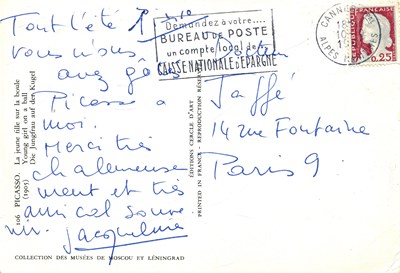 Tout l'été
vous nous
avez gâtés
Picasso &
moi.
Merci très
chaleureuse
ment et très
amical souve
nir. Jacqueline
Demandez à votre....
BUREAU DE POSTE
un compte local de la
CAISSE NATIONALE D'ÉPARGNE
CANNES
18
10
ALPES
FRANÇAISE
0,25
Jaffé
14 rue Fontaine
Paris 9.
106 PICASSO. La jeune fille sur la boule
(1905) Young girl on a ball
Die Jungfrau auf den Kugel
ÉDITIONS CERCLE D'ART - REPRODUCTION
PRINTED IN FRANCE
COLLECTION DES MUSÉES DE MOSCOU ET LÉNINGRAD